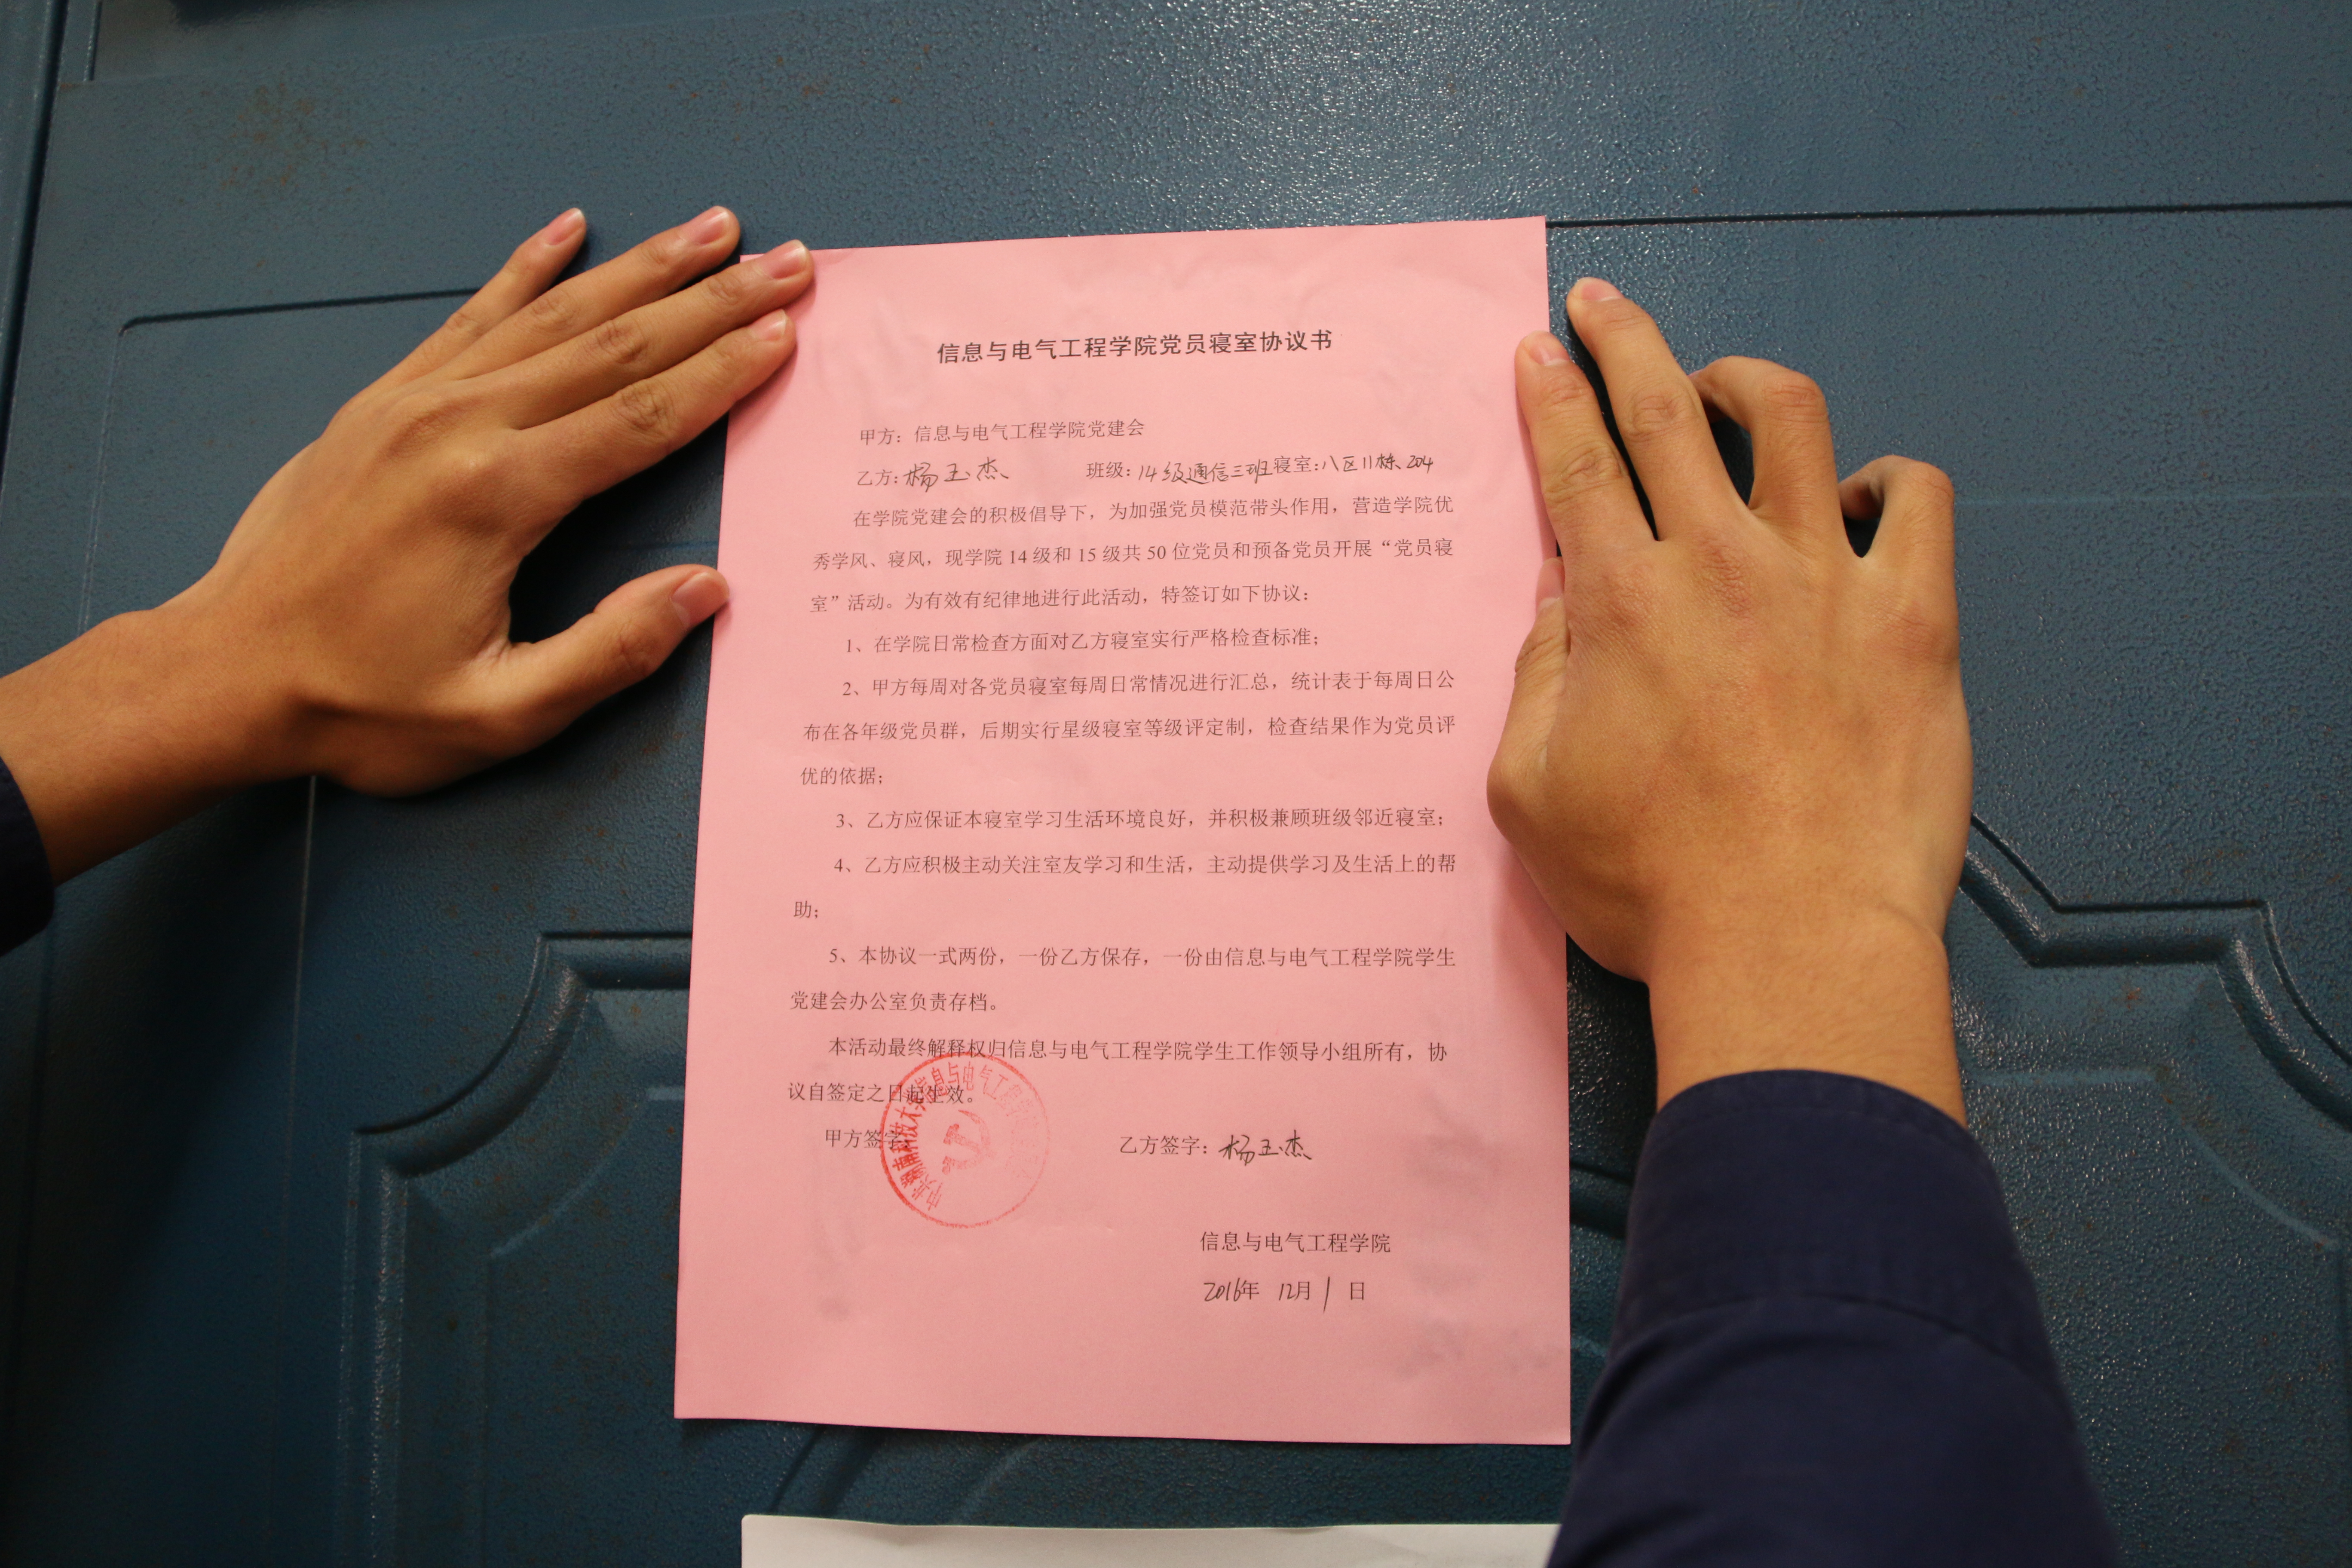 信息与电气工程学院党员寝室协议书
甲方：信息与电气工程学院党建会
乙方：杨玉杰 班级：14级通信三班 寝室：八区11栋204
在学院党建会的积极倡导下，为加强党员模范带头作用，营造学院优
秀学风、寝风，现学院 14 级和 15 级共 50 位党员和预备党员开展“党员寝
室”活动。为有效有纪律地进行此活动，特签订如下协议：
1、在学院日常检查方面对乙方寝室实行严格检查标准；
2、甲方每周对各党员寝室每周日常情况进行汇总，统计表于每周日公
布在各年级党员群，后期实行星级寝室等级评定制，检查结果作为党员评
优的依据；
3、乙方应保证本寝室学习生活环境良好，并积极兼顾班级邻近寝室；
4、乙方应积极主动关注室友学习和生活，主动提供学习及生活上的帮
助；
5、本协议一式两份，一份乙方保存，一份由信息与电气工程学院学生
党建会办公室负责存档。
本活动最终解释权归信息与电气工程学院学生工作领导小组所有，协
议自签定之日起生效。
甲方签字
中共湖南科技大学信息与电气工程
乙方签字：杨玉杰
信息与电气工程学院
2016年 12月 1 日